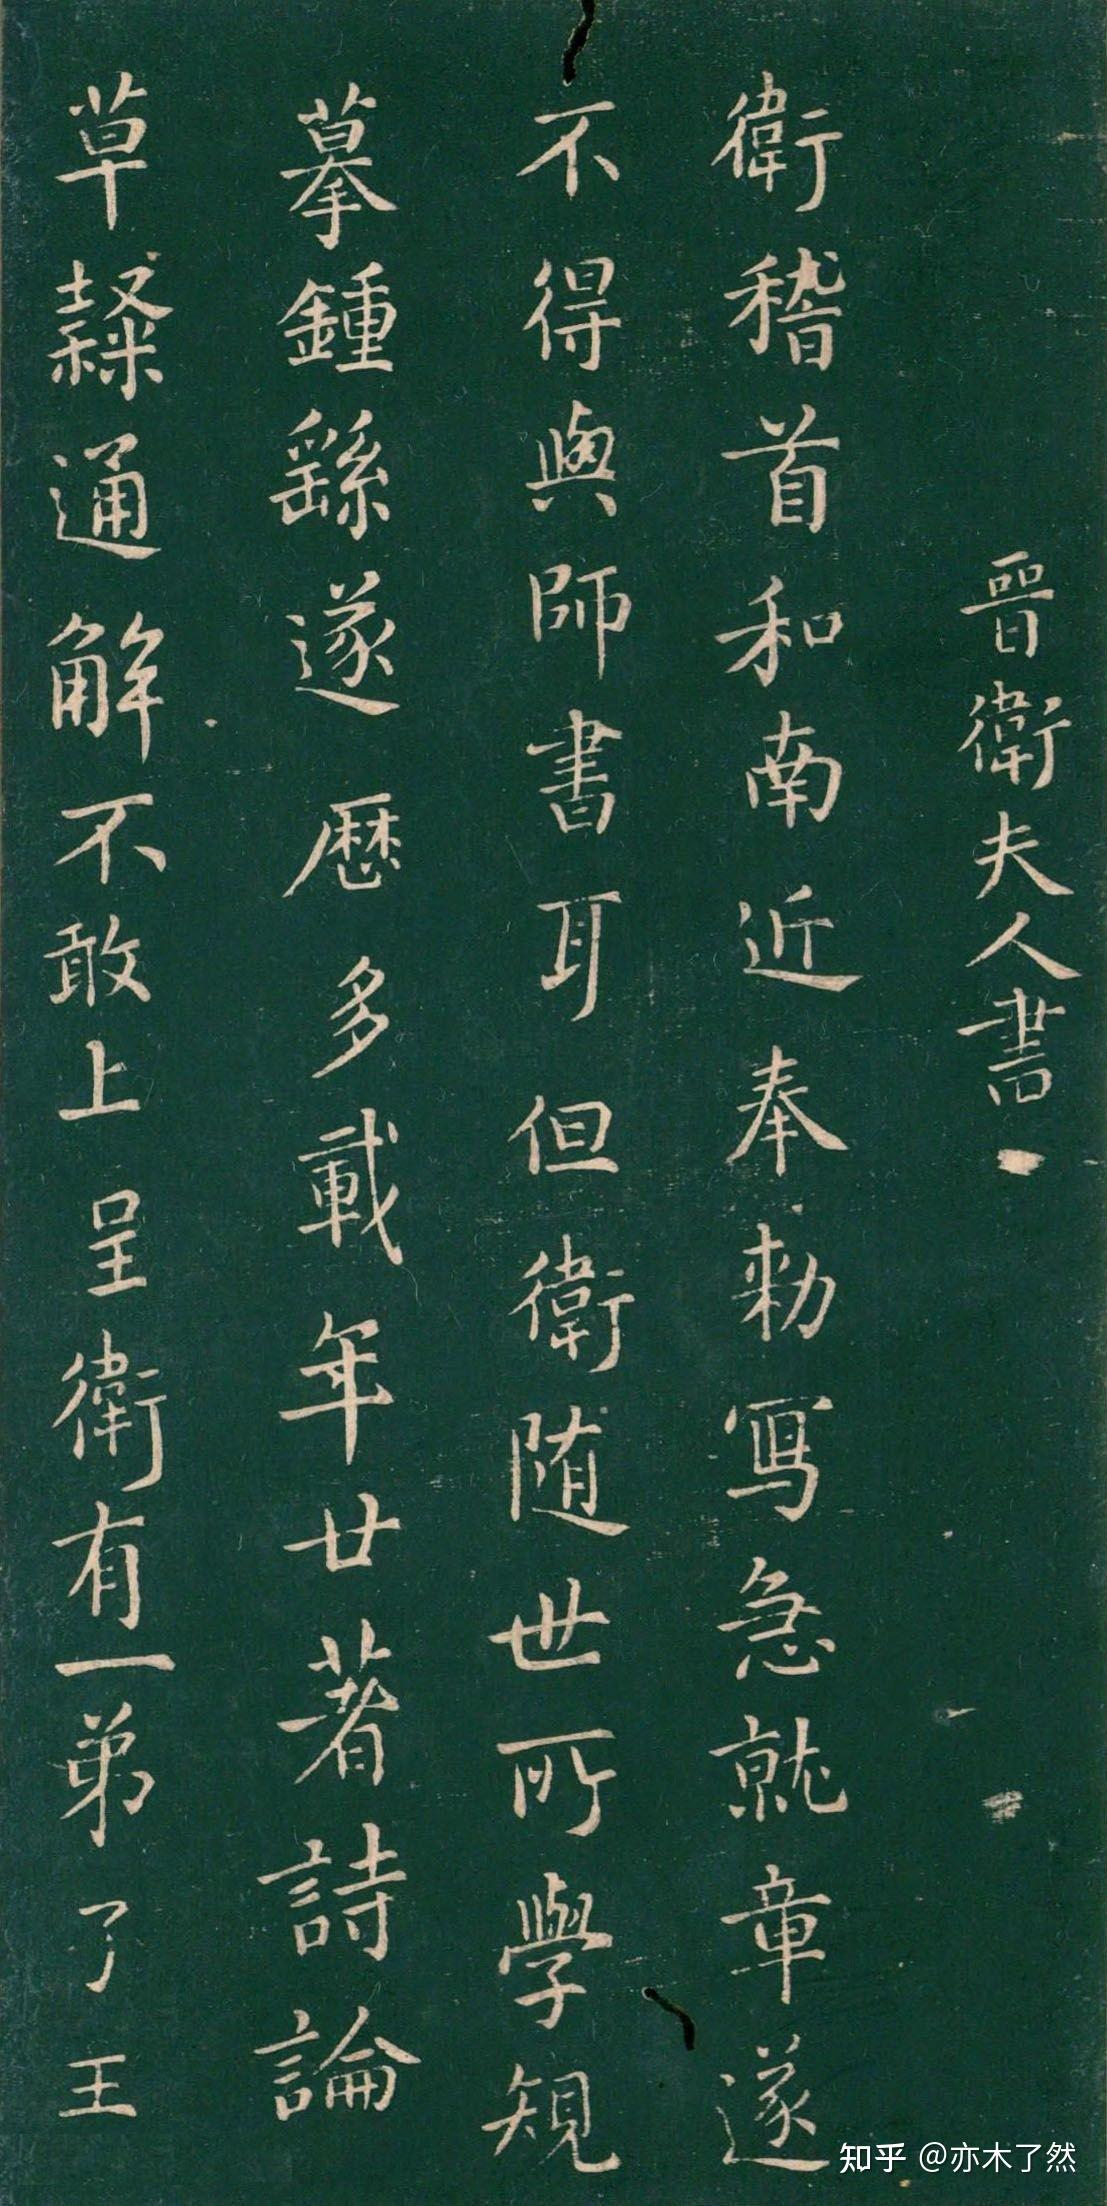 晉衛夫人書
衛稽首和南近奉勅寫急就章遂
不得與師書耳但衛随世所學規
摹鍾繇遂歷多載年廿著詩論
草隸通解不敢上呈衛有一弟子王
知乎 @亦木了然